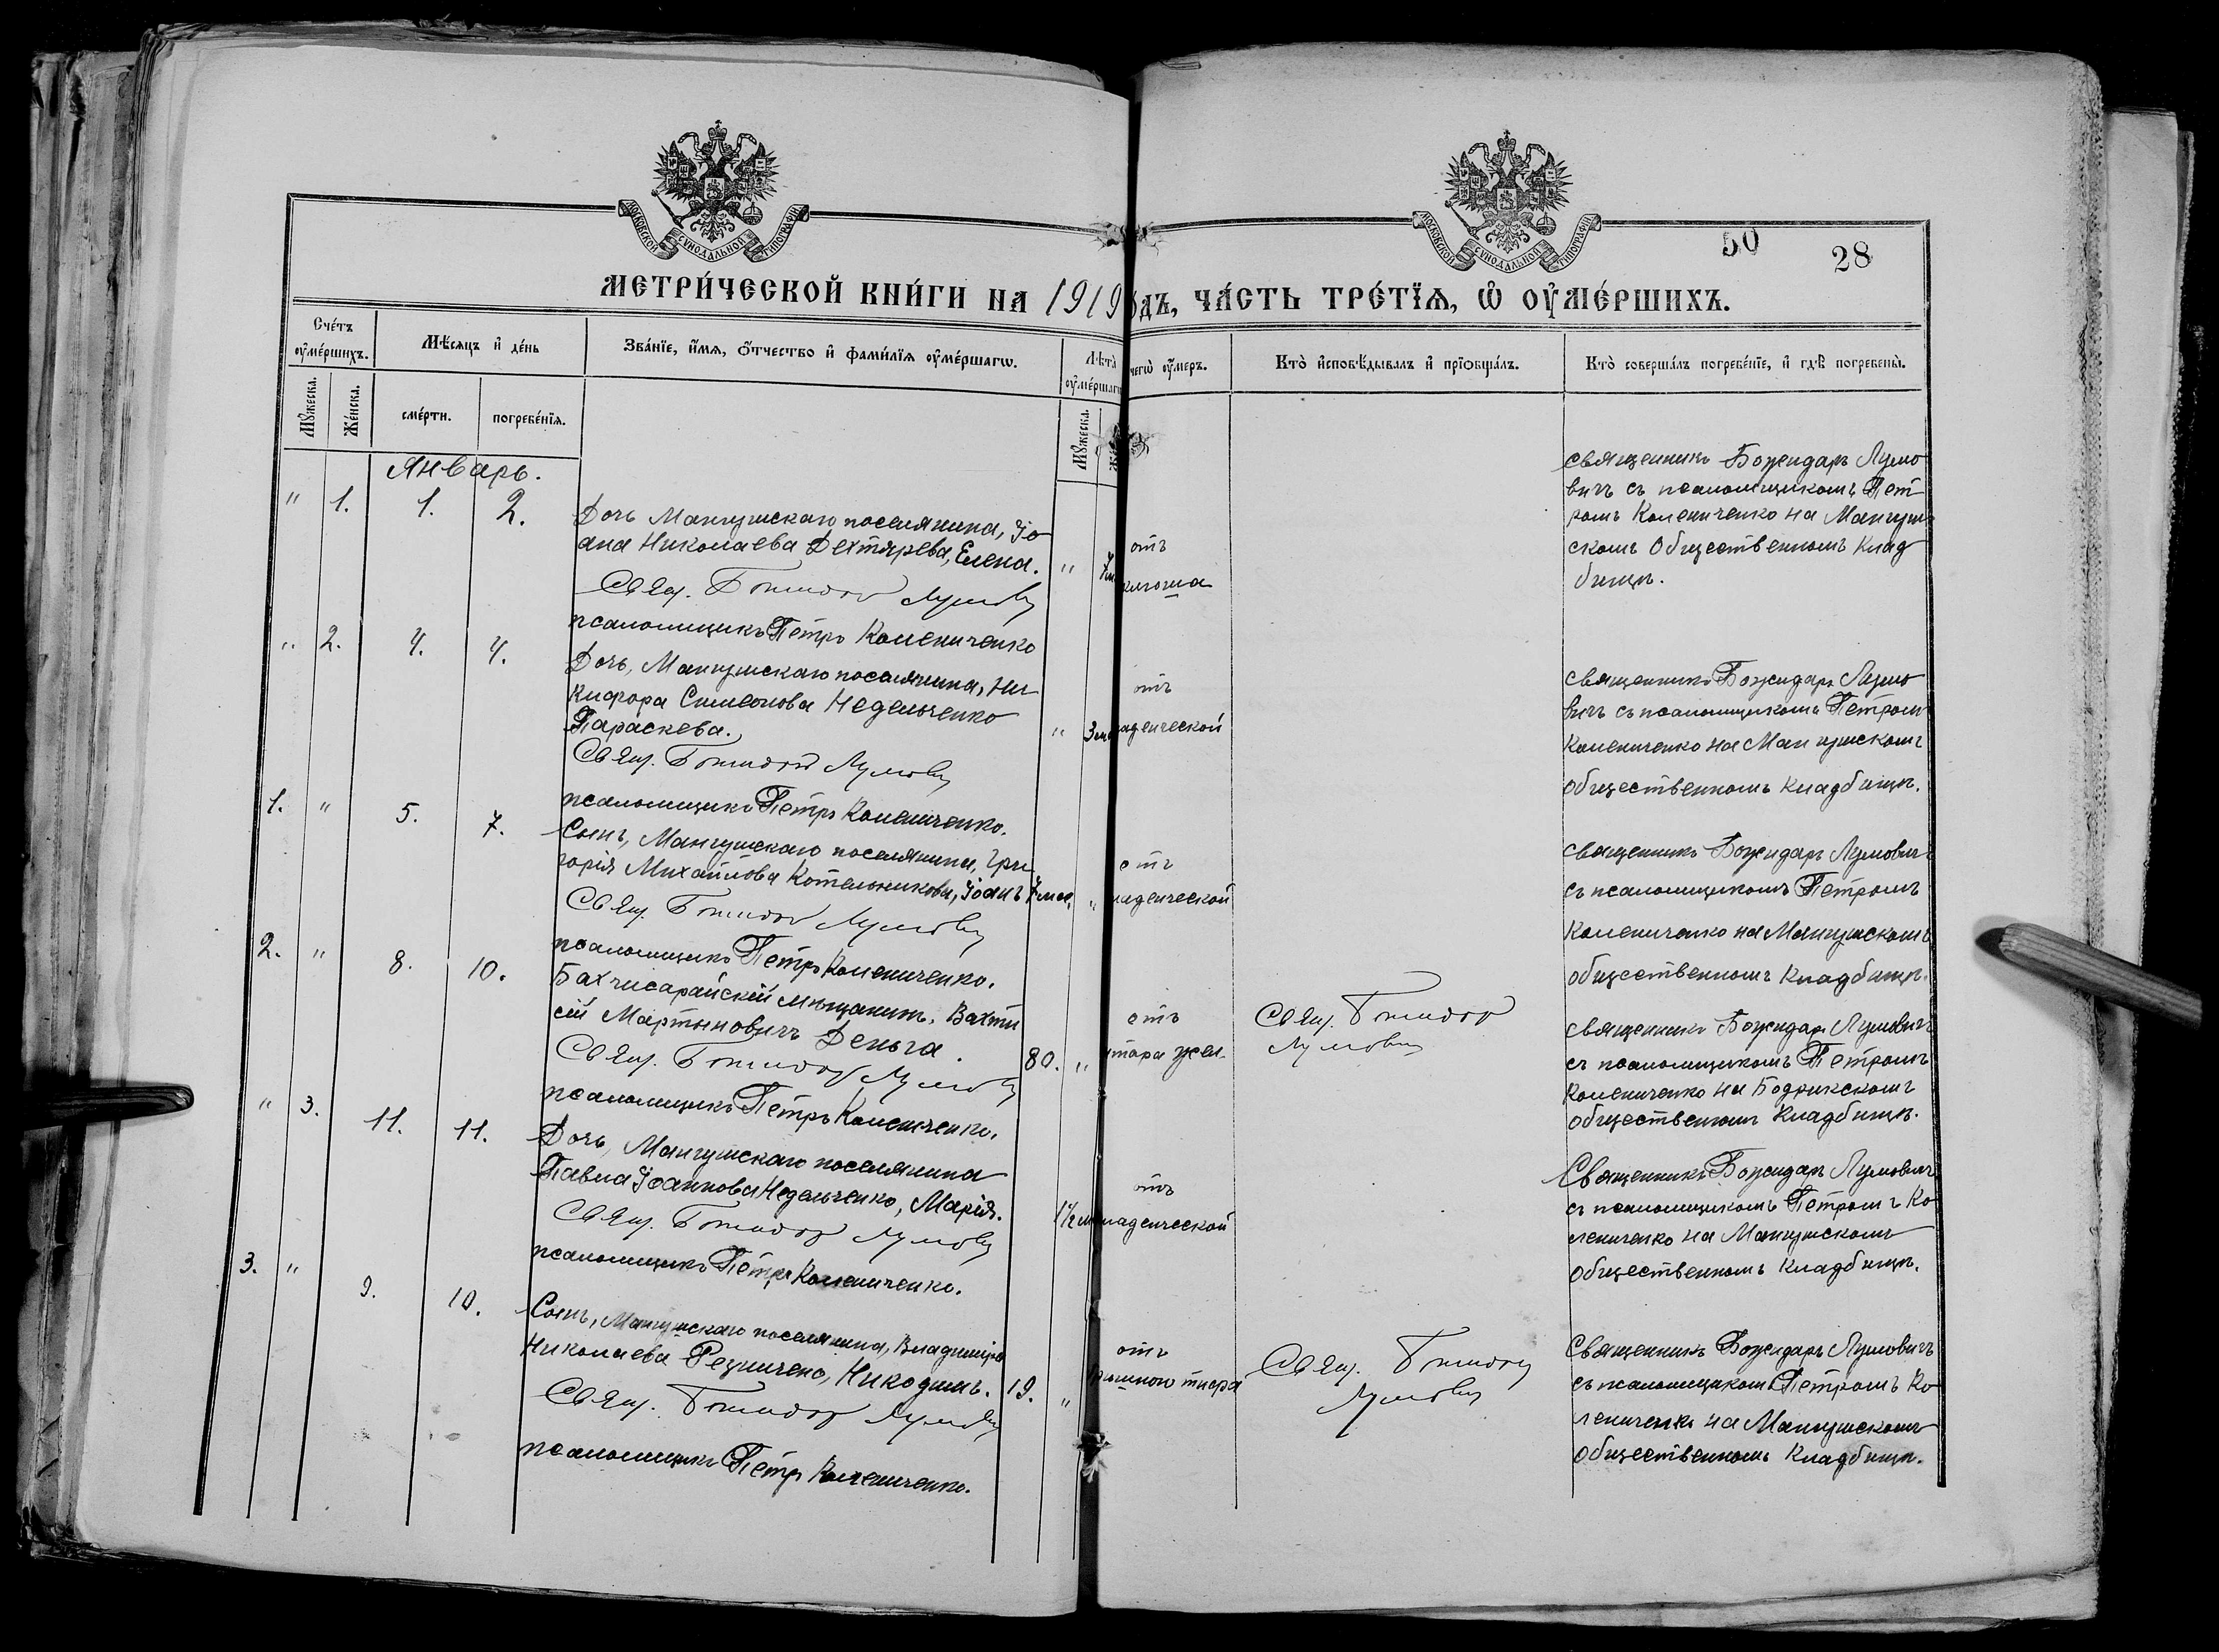 МОСКОВСКОЙ СѴНОДАЛЬНОЙ ТИПОГРАФІИ
МОСКОВСКОЙ СѴНОДАЛЬНОЙ ТИПОГРАФІИ
50
28
МЕТРИ́ЧЕСКОЙ КНИ́ГИ НА 1919
ОДЪ, ЧА́СТЬ ТРЕ́ТЇѦ, Ѡ ОУ҆МЕ́РШИХЪ.
Сче́тъ оу҆ме́ршихъ.
Мѣ́сяцъ и҆ де́нь
Зва́нїе, и҆́мѧ, ѻ҆́тчество и҆ фами́лїѧ оу҆ме́ршагѡ.
Лѣта̀ оу҆ме́ршаг
чегѡ̀ оу҆́меръ.
Кто̀ и҆сповѣ́дывалъ и҆ прїѻбща́лъ.
Кто̀ соверша́лъ погребе́нїе, и҆ гдѣ̀ погребены̀.
Мꙋ́жеска.
Же́нска.
сме́рти.
погребе́нїѧ.
Мꙋ́жеска.
Январь.
" 1. 1. 2.
Дочь Мангушскаго поселянина, Іо
ана Николаева Дехтярева, Елена.
Свящ. Божидар Лумович
псаломщикъ Петръ Колениченко
" 7м
отъ
священникъ Божидаръ Лумо
вичъ съ псаломщикомъ Пет
ромъ Колениченко на Мангуш
скомъ Общественномъ Клад
бищѣ.
" 2. 4. 4.
Дочь, Мангушскаго поселянина, Ни
кифора Симеонова Недельченко
Параскева.
Свящ. Божидар Лумович
псаломщикъ Петръ Колениченко.
" 3 м
отъ
ладенческой
священникъ Божидаръ Лумо
вичъ съ псаломщикомъ Петромъ
Колениченко на Мангушскомъ
общественномъ кладбищѣ.
1. " 5. 7.
Сынъ, Мангушскаго поселянина, Гри
горія Михайлова Котельникова, Іоанъ
Свящ. Божидар Лумович
псаломщикъ Петръ Колениченко.
7 мес. "
отъ
ладенческой
священникъ Божидаръ Лумовичъ
съ псаломщикомъ Петромъ
Колениченко на Мангушскомъ
общественномъ кладбищѣ.
2. " 8. 10.
Бахчисарайскій мѣщанинъ, Вахти
сій Мартыновичъ Деньга.
Свящ. Божидар Лумович
псаломщикъ Петръ Колениченко.
80. "
отъ
Свящ. Божидар
Лумович
священникъ Божидаръ Лумовичъ
съ псаломщикомъ Петромъ
Колениченко на Бодракскомъ
общественномъ Кладбищѣ.
" 3. 11. 11.
Дочь, Мангушскаго поселянина
Павла Іоаннова Недельченко, Марія.
Свящ. Божидар Лумович
псаломщикъ Петръ Колениченко.
1½ м
отъ
ладенческой
Священникъ Божидаръ Лумовичъ
съ псаломщикомъ Петромъ Ко
лениченко на Мангушскомъ
общественномъ кладбищѣ.
3. " 9. 10.
Сынъ, Мангушскаго поселянина, Владиміра
Николаева Резничено, Никодимъ.
Свящ. Божидар Лумович
псаломщикъ Петръ Колениченко.
19. "
отъ
Свящ. Божидар
Лумович
Священникъ Божидаръ Лумовичъ
съ псаломщиком Петромъ Ко
лениченко на Мангушскомъ
Общественномъ Кладбищѣ.